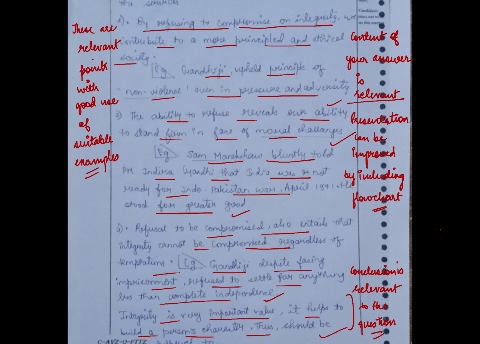 for sources
2). By refusing to compromise on integrity, we
contribute to a more principled and ethical
society.
Eg Gandhiji upheld principle of
'non violence' even in pressure and adversity
The ability to refuse reveals our ability
to stand firm in face of moral challenges
Eg Sam Manekshaw bluntly told
PM Indira Gandhi that India was not
ready for Indo-Pakistan war, April 1971. He
stood for greater good
Refusal to be compromised, also entails that
integrity cannot be compromised regardless of
temptations. Eg Gandhiji despite facing
imprisonment, refused to settle for anything
less than complete independence
Integrity is very important value, it helps to
build a person's character. Thus, should be
These are
relevant
points
with
good use
of
suitable
examples
Content of
your answer
is
relevant
Presentation
can be
improved
by including
flowchart
Conclusion is
relevant
to the
question